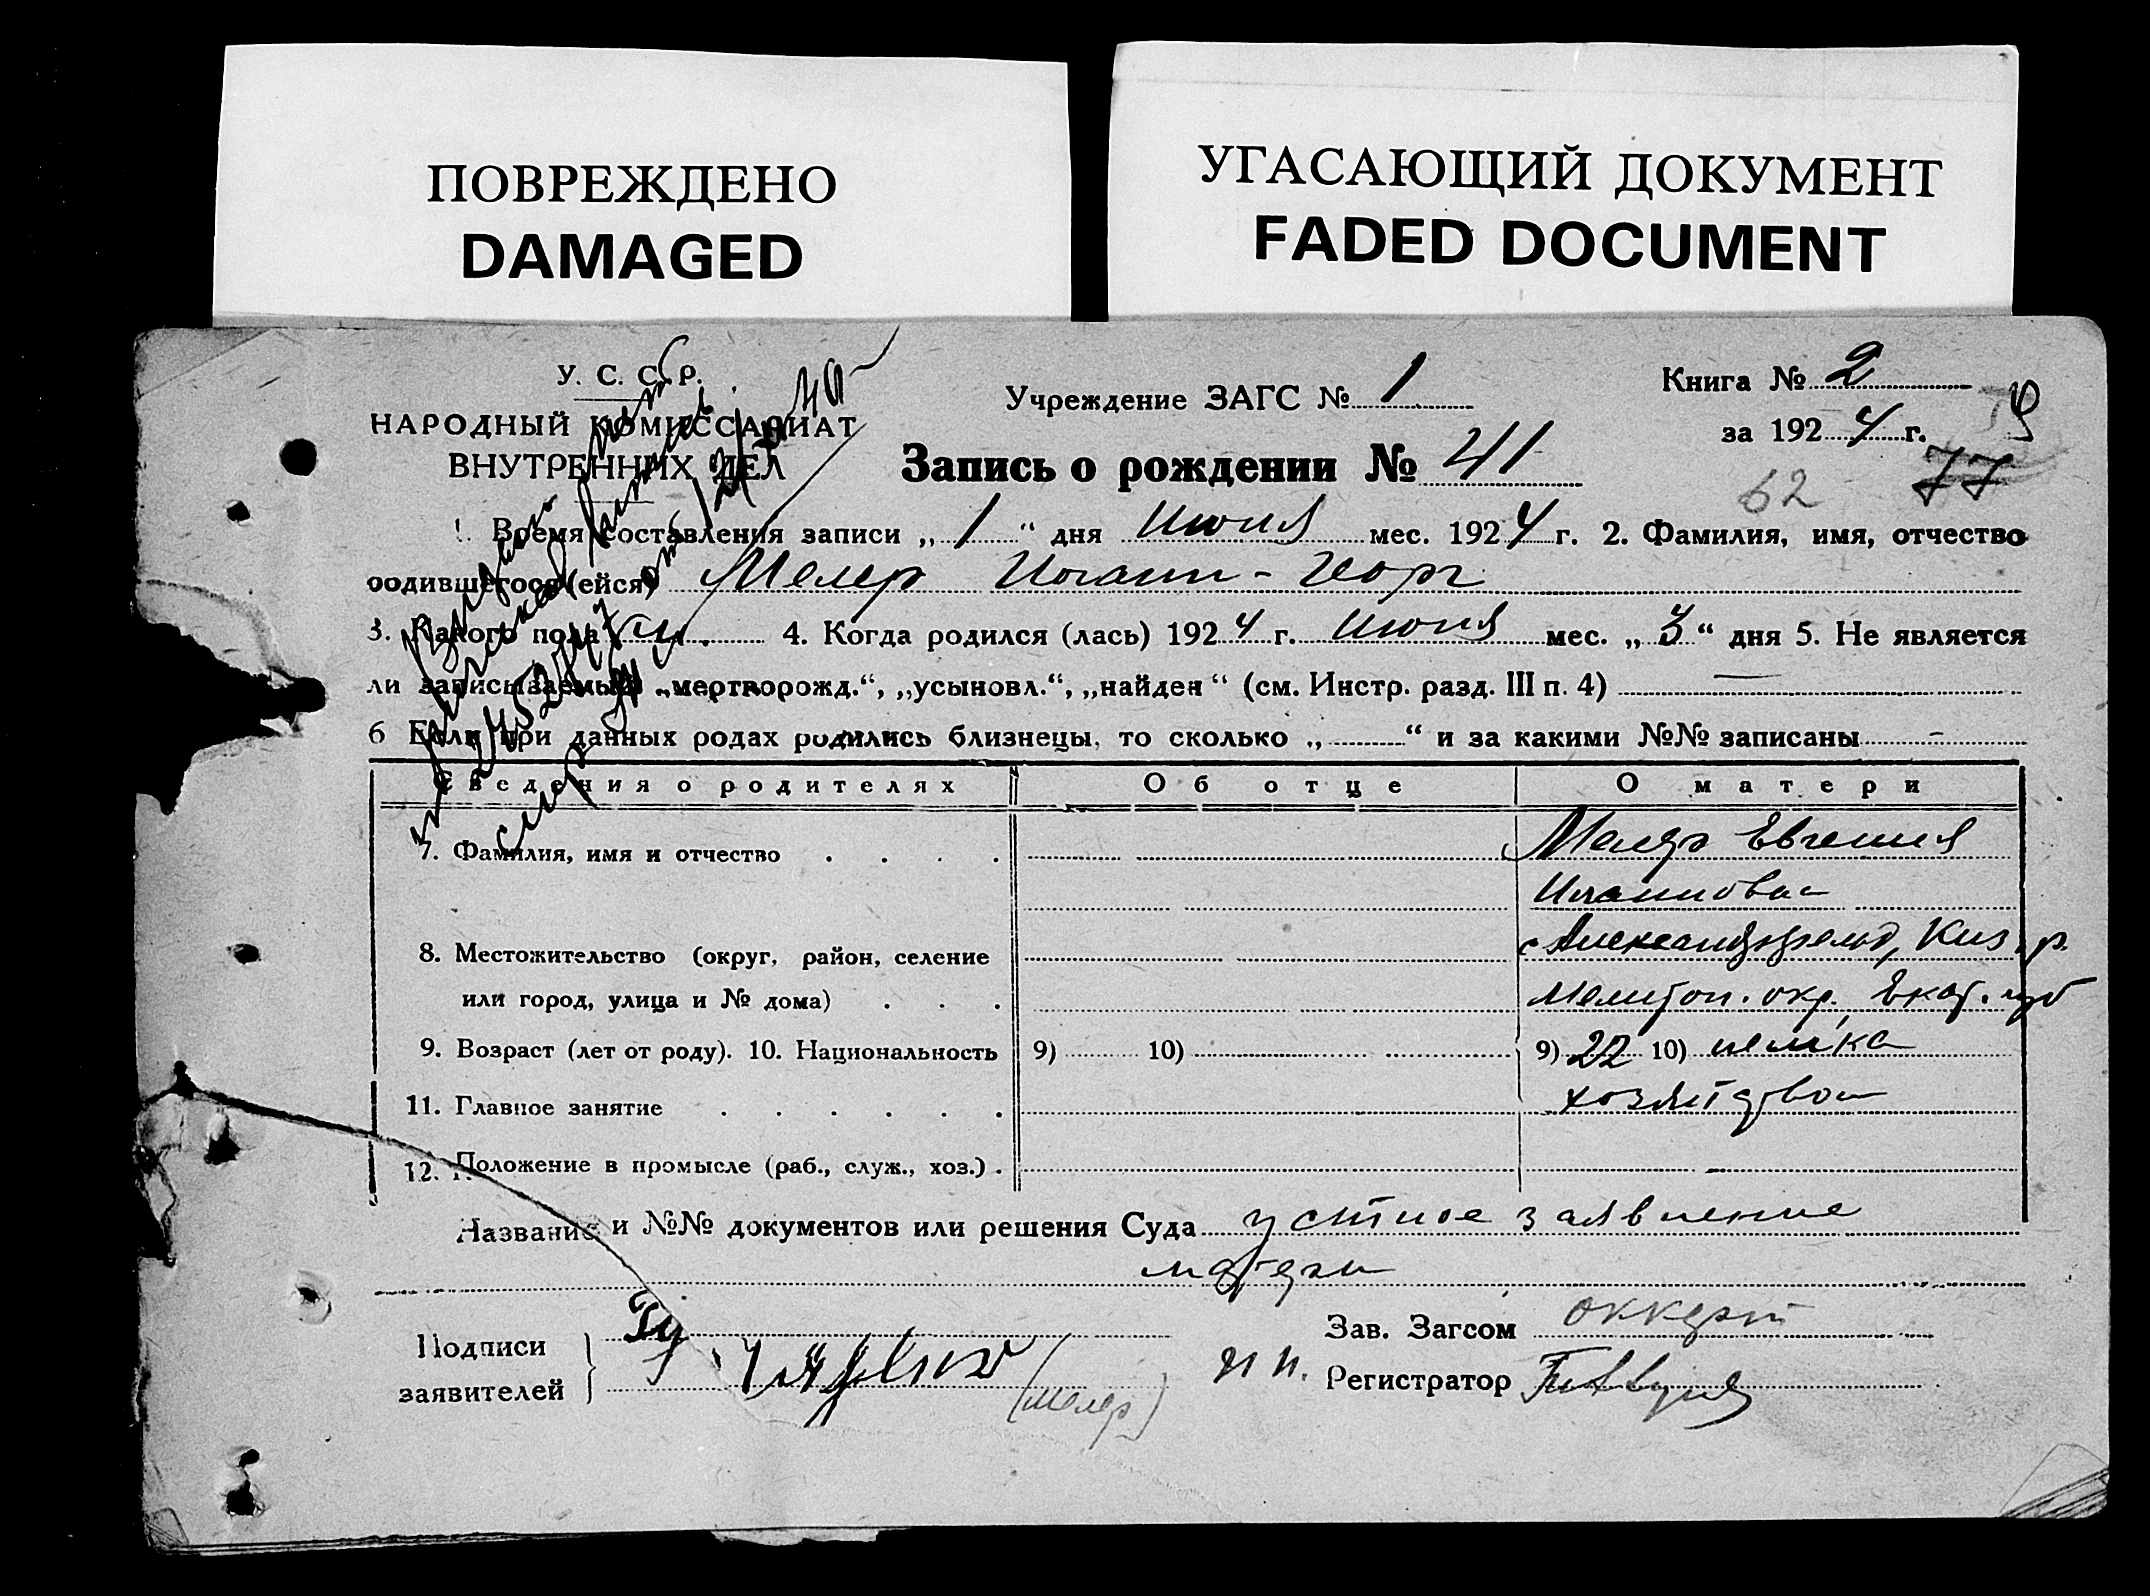 ПОВРЕЖДЕНО
DAMAGED
УГАСАЮЩИЙ ДОКУМЕНТ
FADED DOCUMENT
У. С. С. Р.
НАРОДНЫЙ КОМИССАРИАТ
ВНУТРЕННИХ ДЕЛ
Учреждение ЗАГС № 1
Книга № 2
за 1924 г.
Запись о рождении № 41
62 77
1. Время составления записи „1“ дня Июня мес. 1924 г. 2. Фамилия, имя, отчество
родившегося (ейся) Мелер Иоганн-Георг
3. Какого пола м. 4. Когда родился (лась) 1924 г. июня мес. „3“ дня 5. Не является
ли записываемый „мертворожд.“, „усыновл.“, „найден“ (см. Инстр. разд. III п. 4) —
6 Если при данных родах родились близнецы, то сколько „ “ и за какими №№ записаны -
Сведения о родителях Об отце О матери
7. Фамилия, имя и отчество Мелер Евгения
Иоганновна
8. Местожительство (округ, район, селение с Александрфельд, Киз. р.
или город, улица и № дома) Мелитоп. окр. Екат. губ
9. Возраст (лет от роду). 10. Национальность 9) 10) 9) 22 10) немка
11. Главное занятие хозяйство
12. Положение в промысле (раб., служ., хоз.)
Название и №№ документов или решения Суда устное заявление
матери
Подписи
заявителей
(Мелер)
Зав. Загсом Оккерт
Регистратор